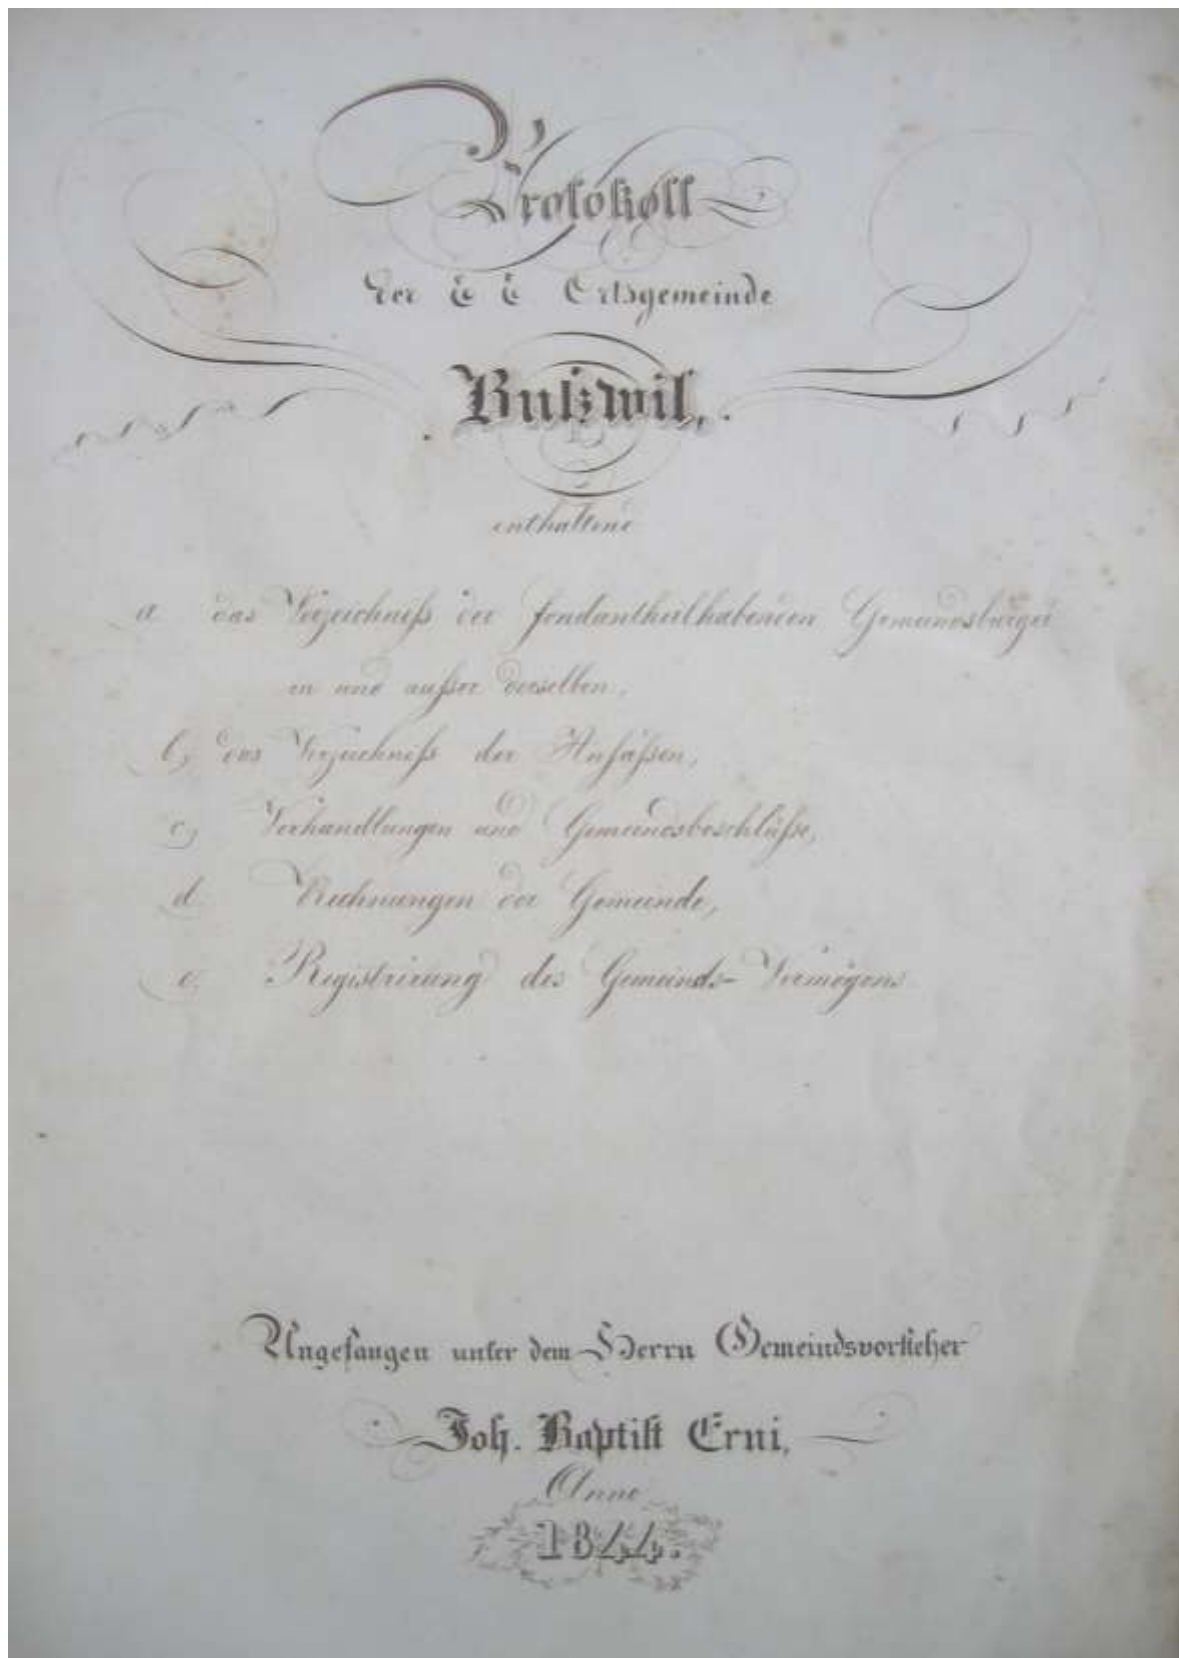 Protokoll
der E E Ortsgemeinde
Butzwil,
enthaltend
a das Verzeichniß der fondantheilhabenden Gemeindsbürger
in und ausser derselben,
b, das Verzeichniß der Ansäßen,
c, Verhandlungen und Gemeindsbeschlüße,
d. Rechnungen der Gemeinde,
e. Registrierung des Gemeinds-Vermögens
Angefangen unter dem Herrn Gemeindsvorsteher
Joh. Baptist Erni,
Anno
1844.